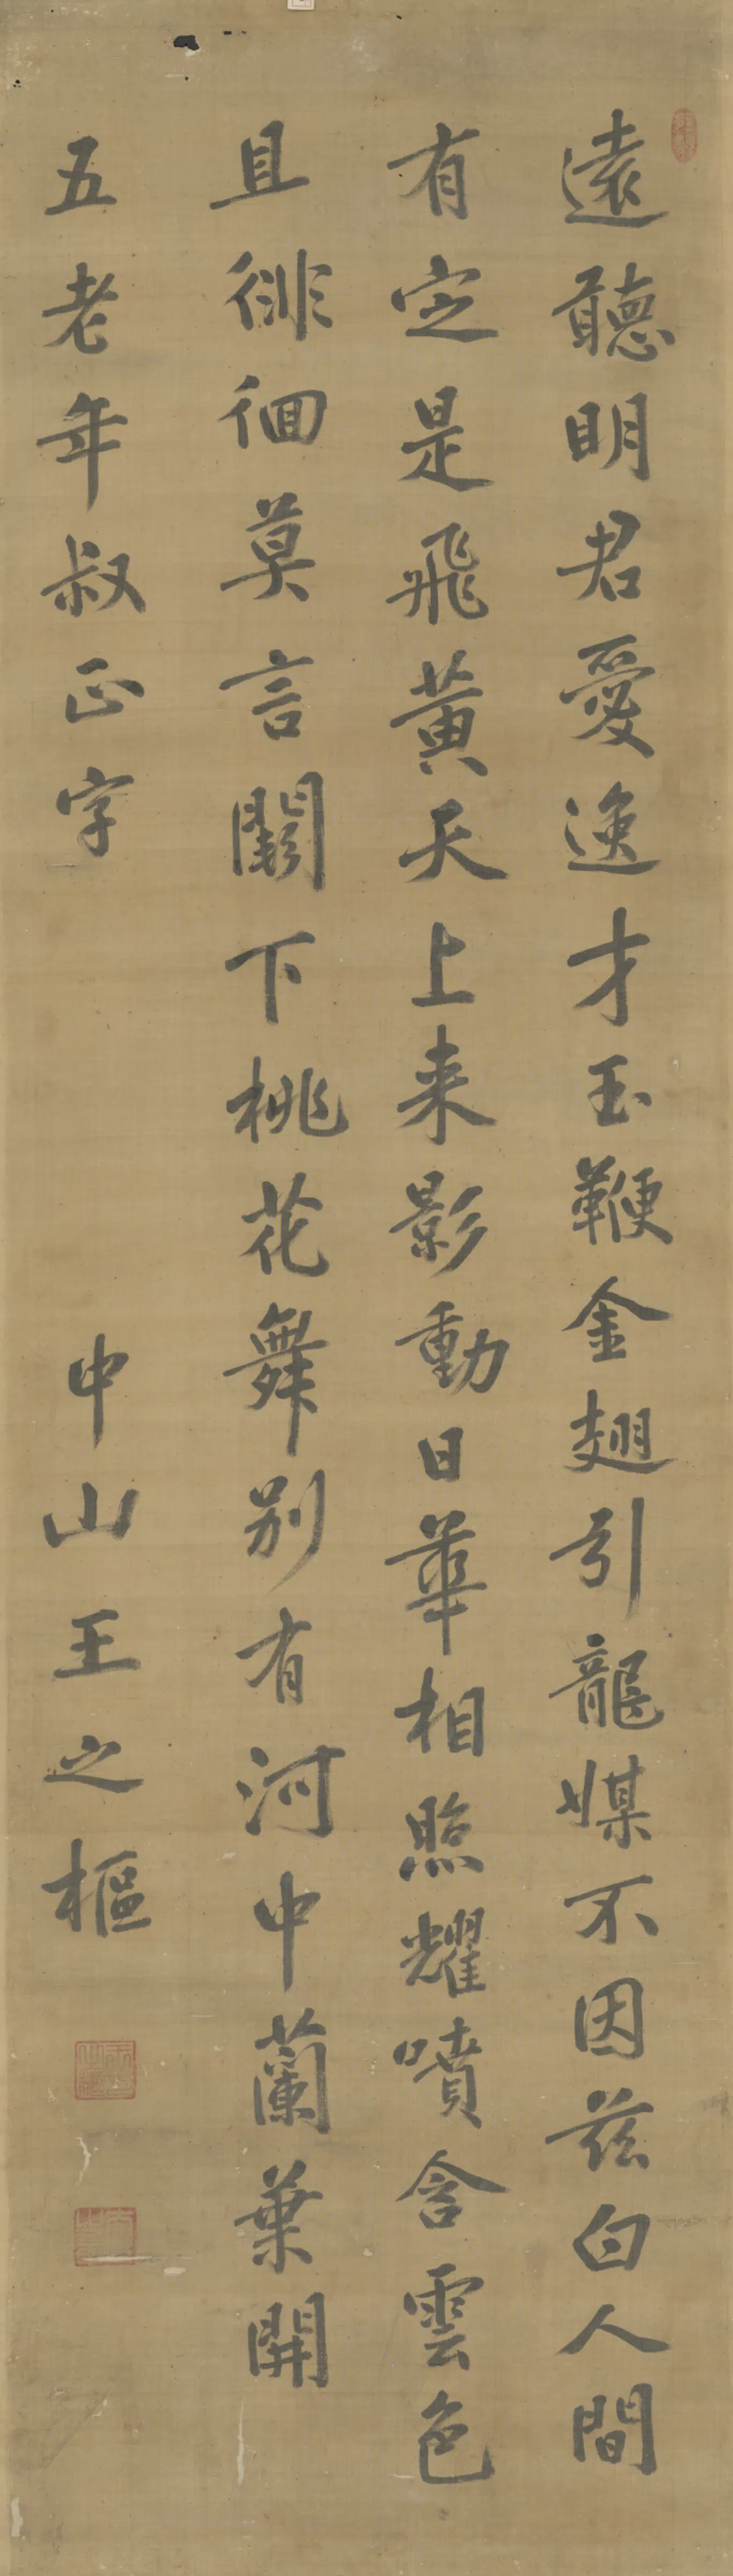 遠聽明君愛逸才玉鞭金翅引龍媒不因茲白人間
有定是飛黃天上来影動日華相照耀噴含雲色
且徘徊莫言闕下桃花舞别有河中蘭葉開
五老年叔正字
中山王之樞